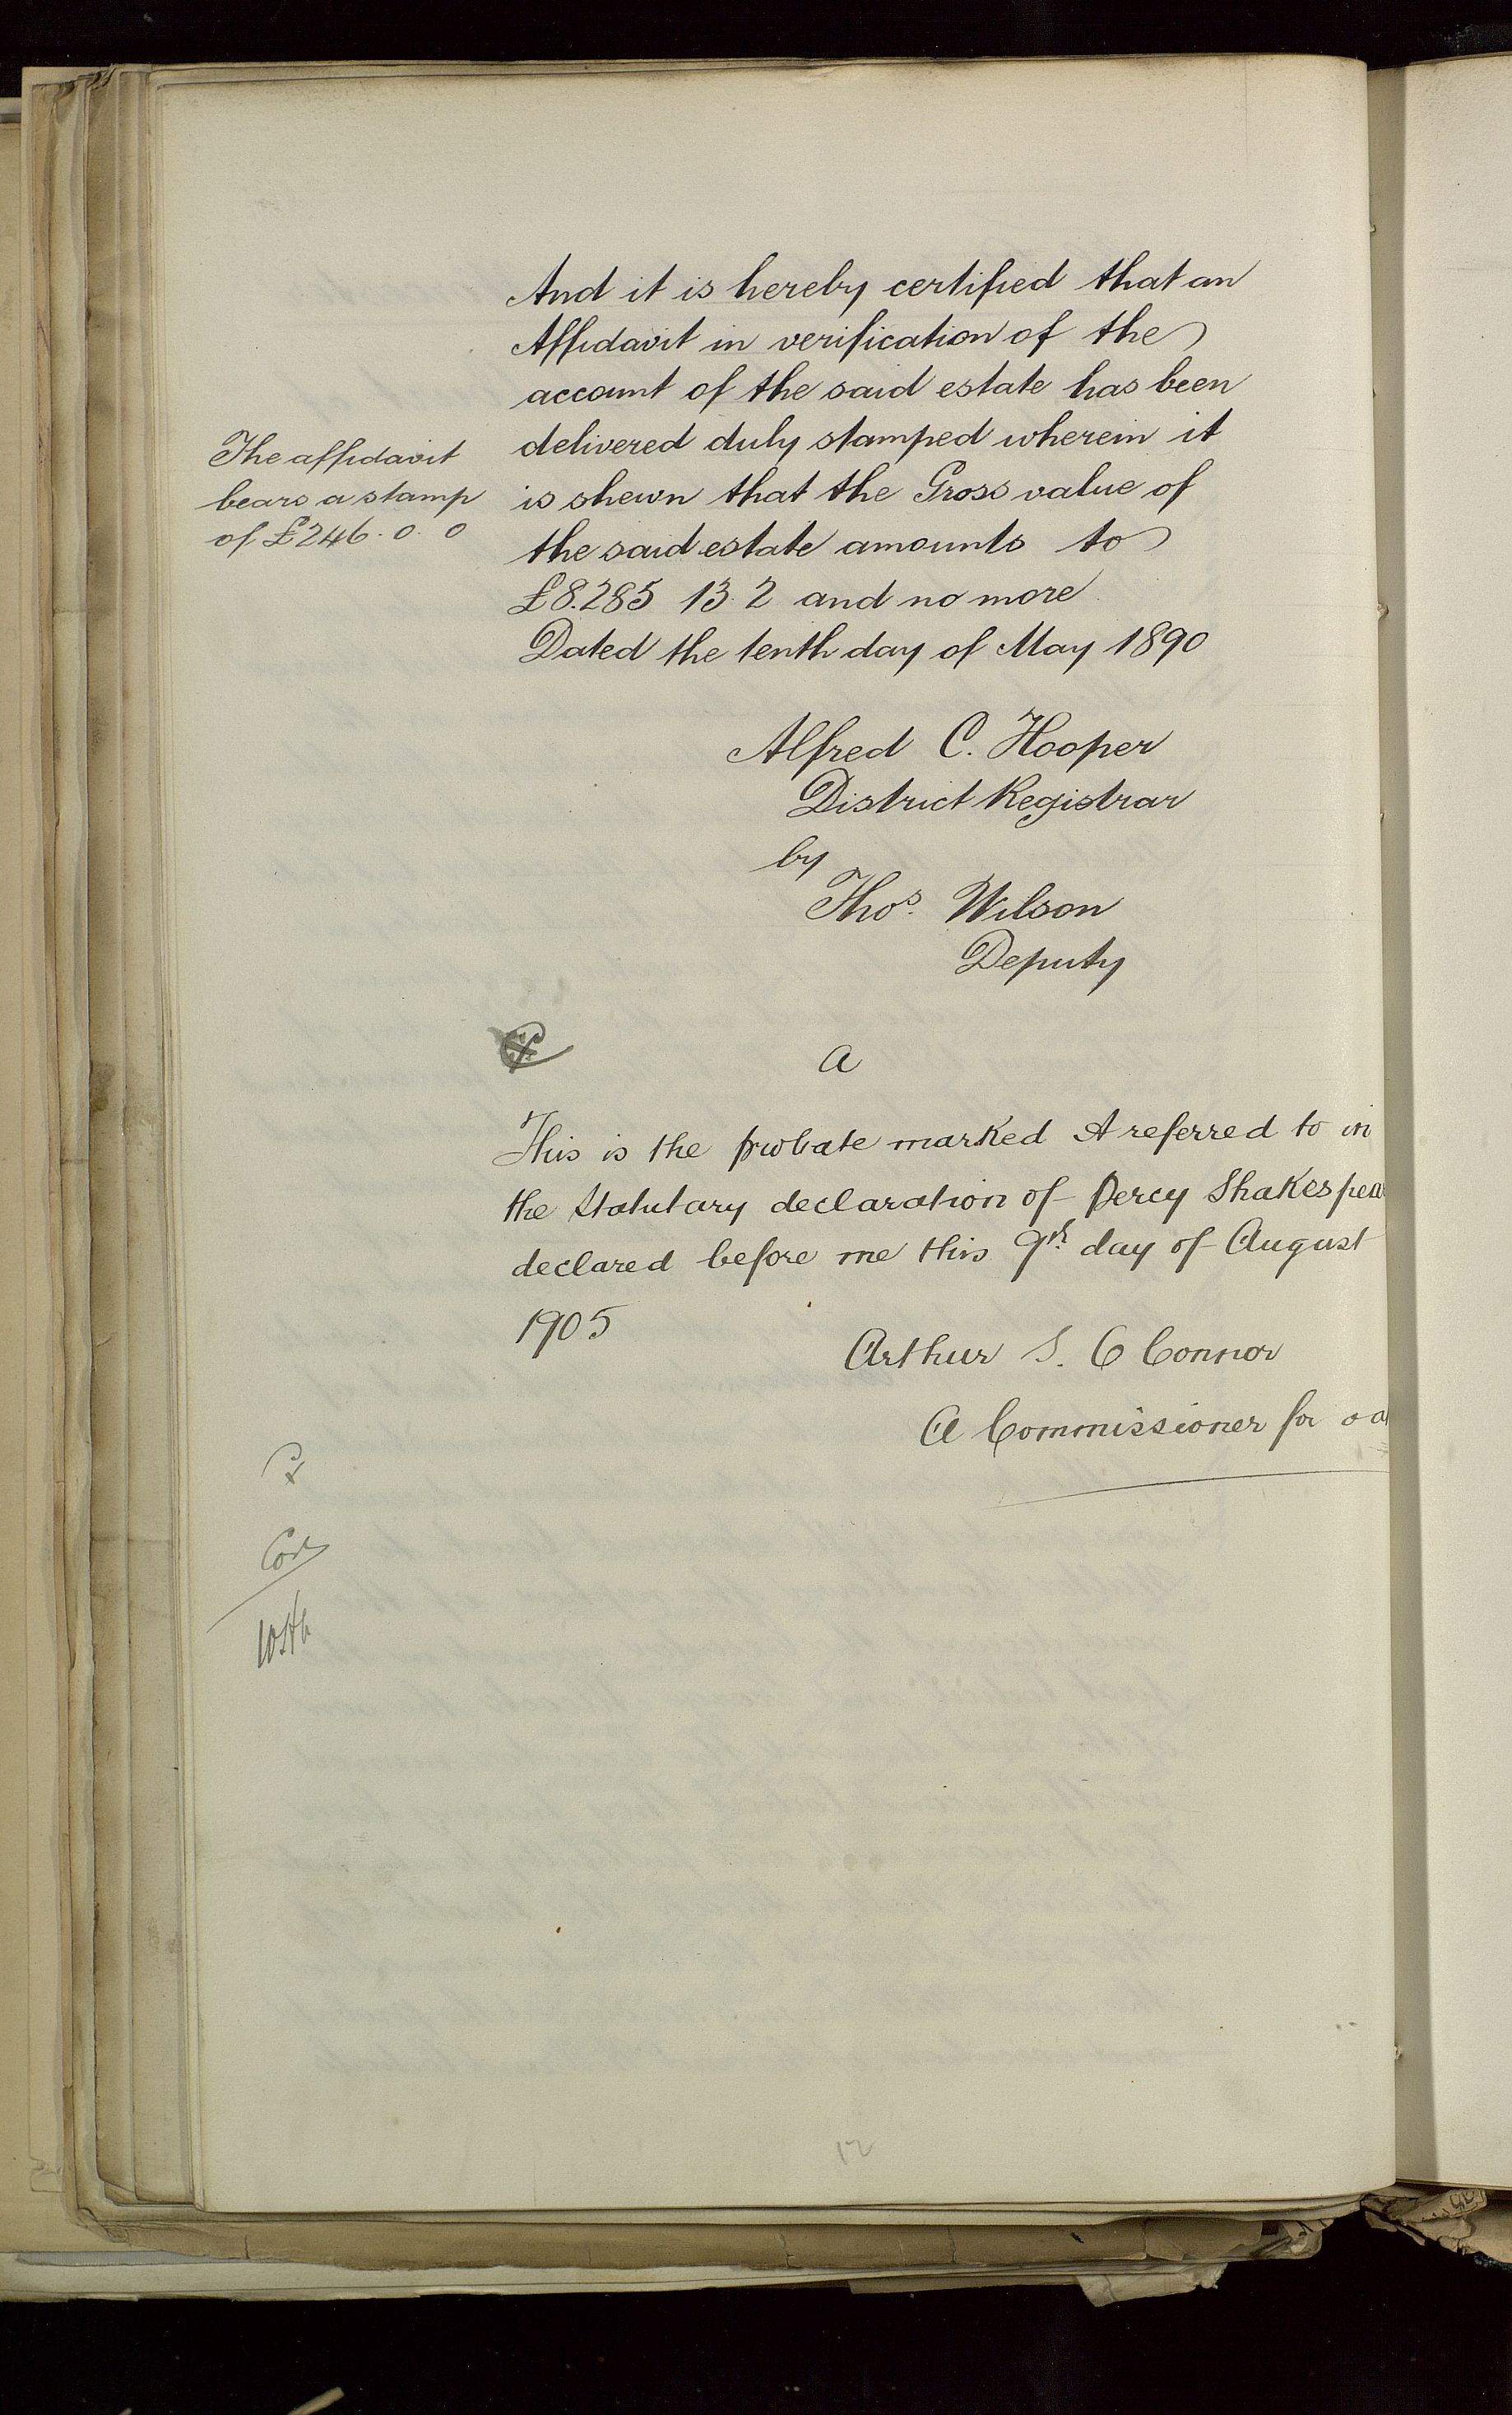 And it is hereby certified that an
Affidavit in verification of the
account of the said estate has been
delivered duly stamped wherein it
is shewn that the Gross value of
the said estate amounts to
£8.285 13.2 and no more
Dated the tenth day of May 1890
The affidavit
bears a stamp
of £246. 0. 0
Alfred C. Hooper
District Registrar
by
Thos. Wilson
Deputy
A
This is the probate marked A referred to in
the Statutary declaration of Percy Shakespea
declared before me this 9th day of August
1905
Arthur S. O Connor
A Commissioner for oa
12